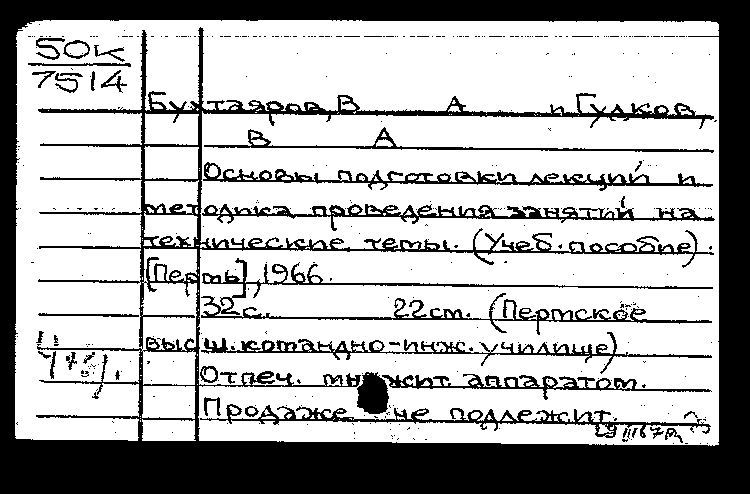 50к
7514
Бухтаяров, В А и Гудков,
В А
Основы подготовки лекций и
методика проведения занятий на
технические темы. (Учеб. пособие).
[Пермь], 1966.
32 с. 22 см. (Пермское
высш. командно-инж. училище)
Отпеч. множит. аппаратом.
Продаже не подлежит.